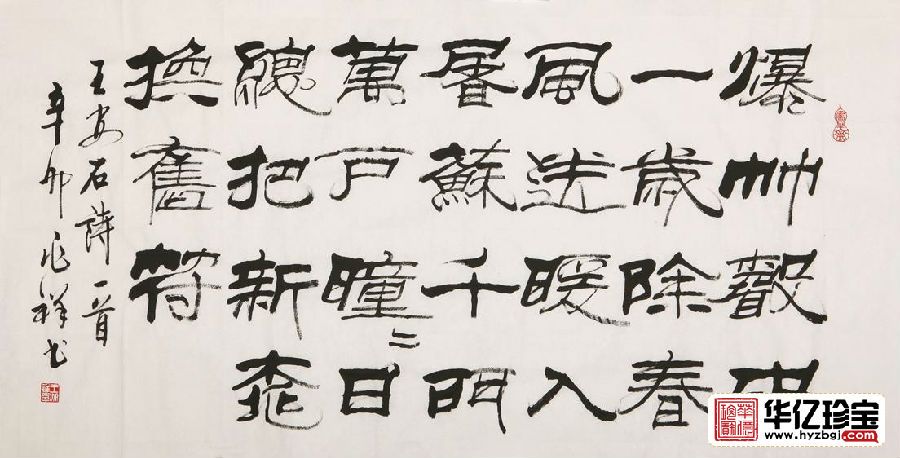 爆竹聲中
一歲除春
風送暖入
屠蘇千門
萬戶曈二日
總把新桃
換舊符
王安石詩一首
辛卯兆祥书
华亿珍宝
www.hyzbgj.com